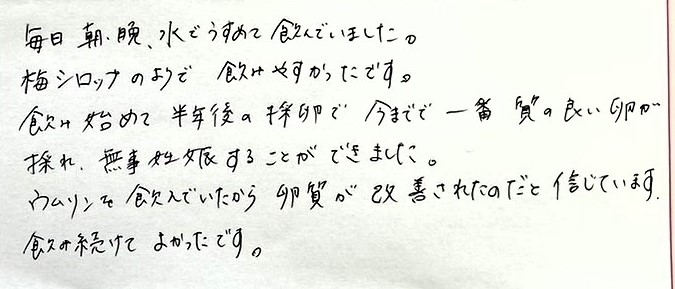 毎日 朝・晩、水でうすめて 飲んでいました。
梅シロップのようで 飲みやすかったです。
飲み始めて 半年後の採卵で 今までで 一番 質の良い卵が
採れ、無事妊娠することができました。
ウムリンを 飲んでいたから 卵質が 改善されたのだと 信じています.
飲み続けて よかったです。